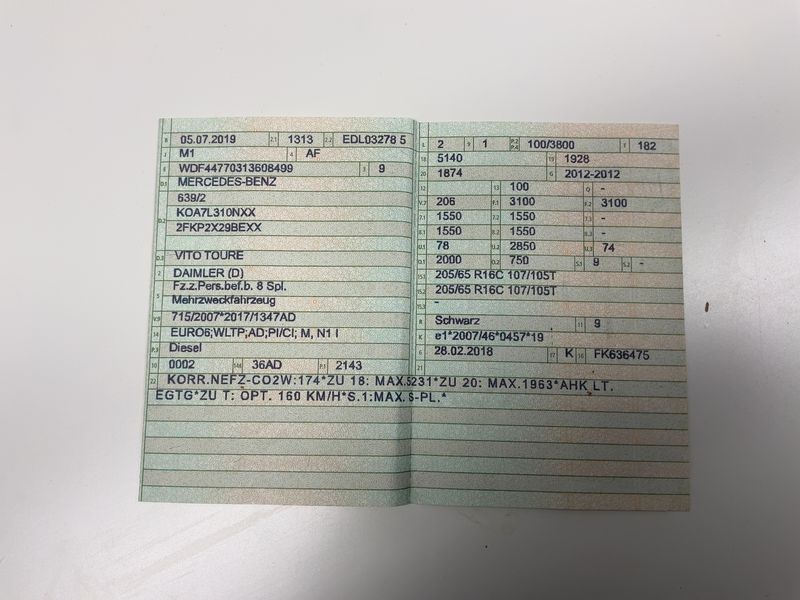 B 05.07.2019 2.1 1313 2.2 EDL03278 5
J M1 4 AF
E WDF44770313608499 3 9
D.1 MERCEDES-BENZ
639/2
D.2 KOA7L310NXX
2FKP2X29BEXX
D.3 VITO TOURE
2 DAIMLER (D)
5 Fz.z.Pers.bef.b. 8 Spl.
Mehrzweckfahrzeug
V.9 715/2007*2017/1347AD
14 EURO6;WLTP;AD;PI/CI; M, N1 I
P.3 Diesel
10 0002 14.1 36AD P.1 2143
L 2 9 1 P.2 P.4 100/3800 T 182
18 5140 19 1928
20 1874 G 2012-2012
12 13 100 Q -
V.7 206 F.1 3100 F.2 3100
7.1 1550 7.2 1550 7.3 -
8.1 1550 8.2 1550 8.3 -
U.1 78 U.2 2850 U.3 74
O.1 2000 O.2 750 S.1 9 S.2 -
15.1 205/65 R16C 107/105T
15.2 205/65 R16C 107/105T
15.3 -
R Schwarz 11 9
K e1*2007/46*0457*19
6 28.02.2018 17 K 16 FK636475
21
22 KORR.NEFZ-CO2W:174*ZU 18: MAX.5231*ZU 20: MAX.1963*AHK LT.
EGTG*ZU T: OPT. 160 KM/H*S.1:MAX. -PL.*